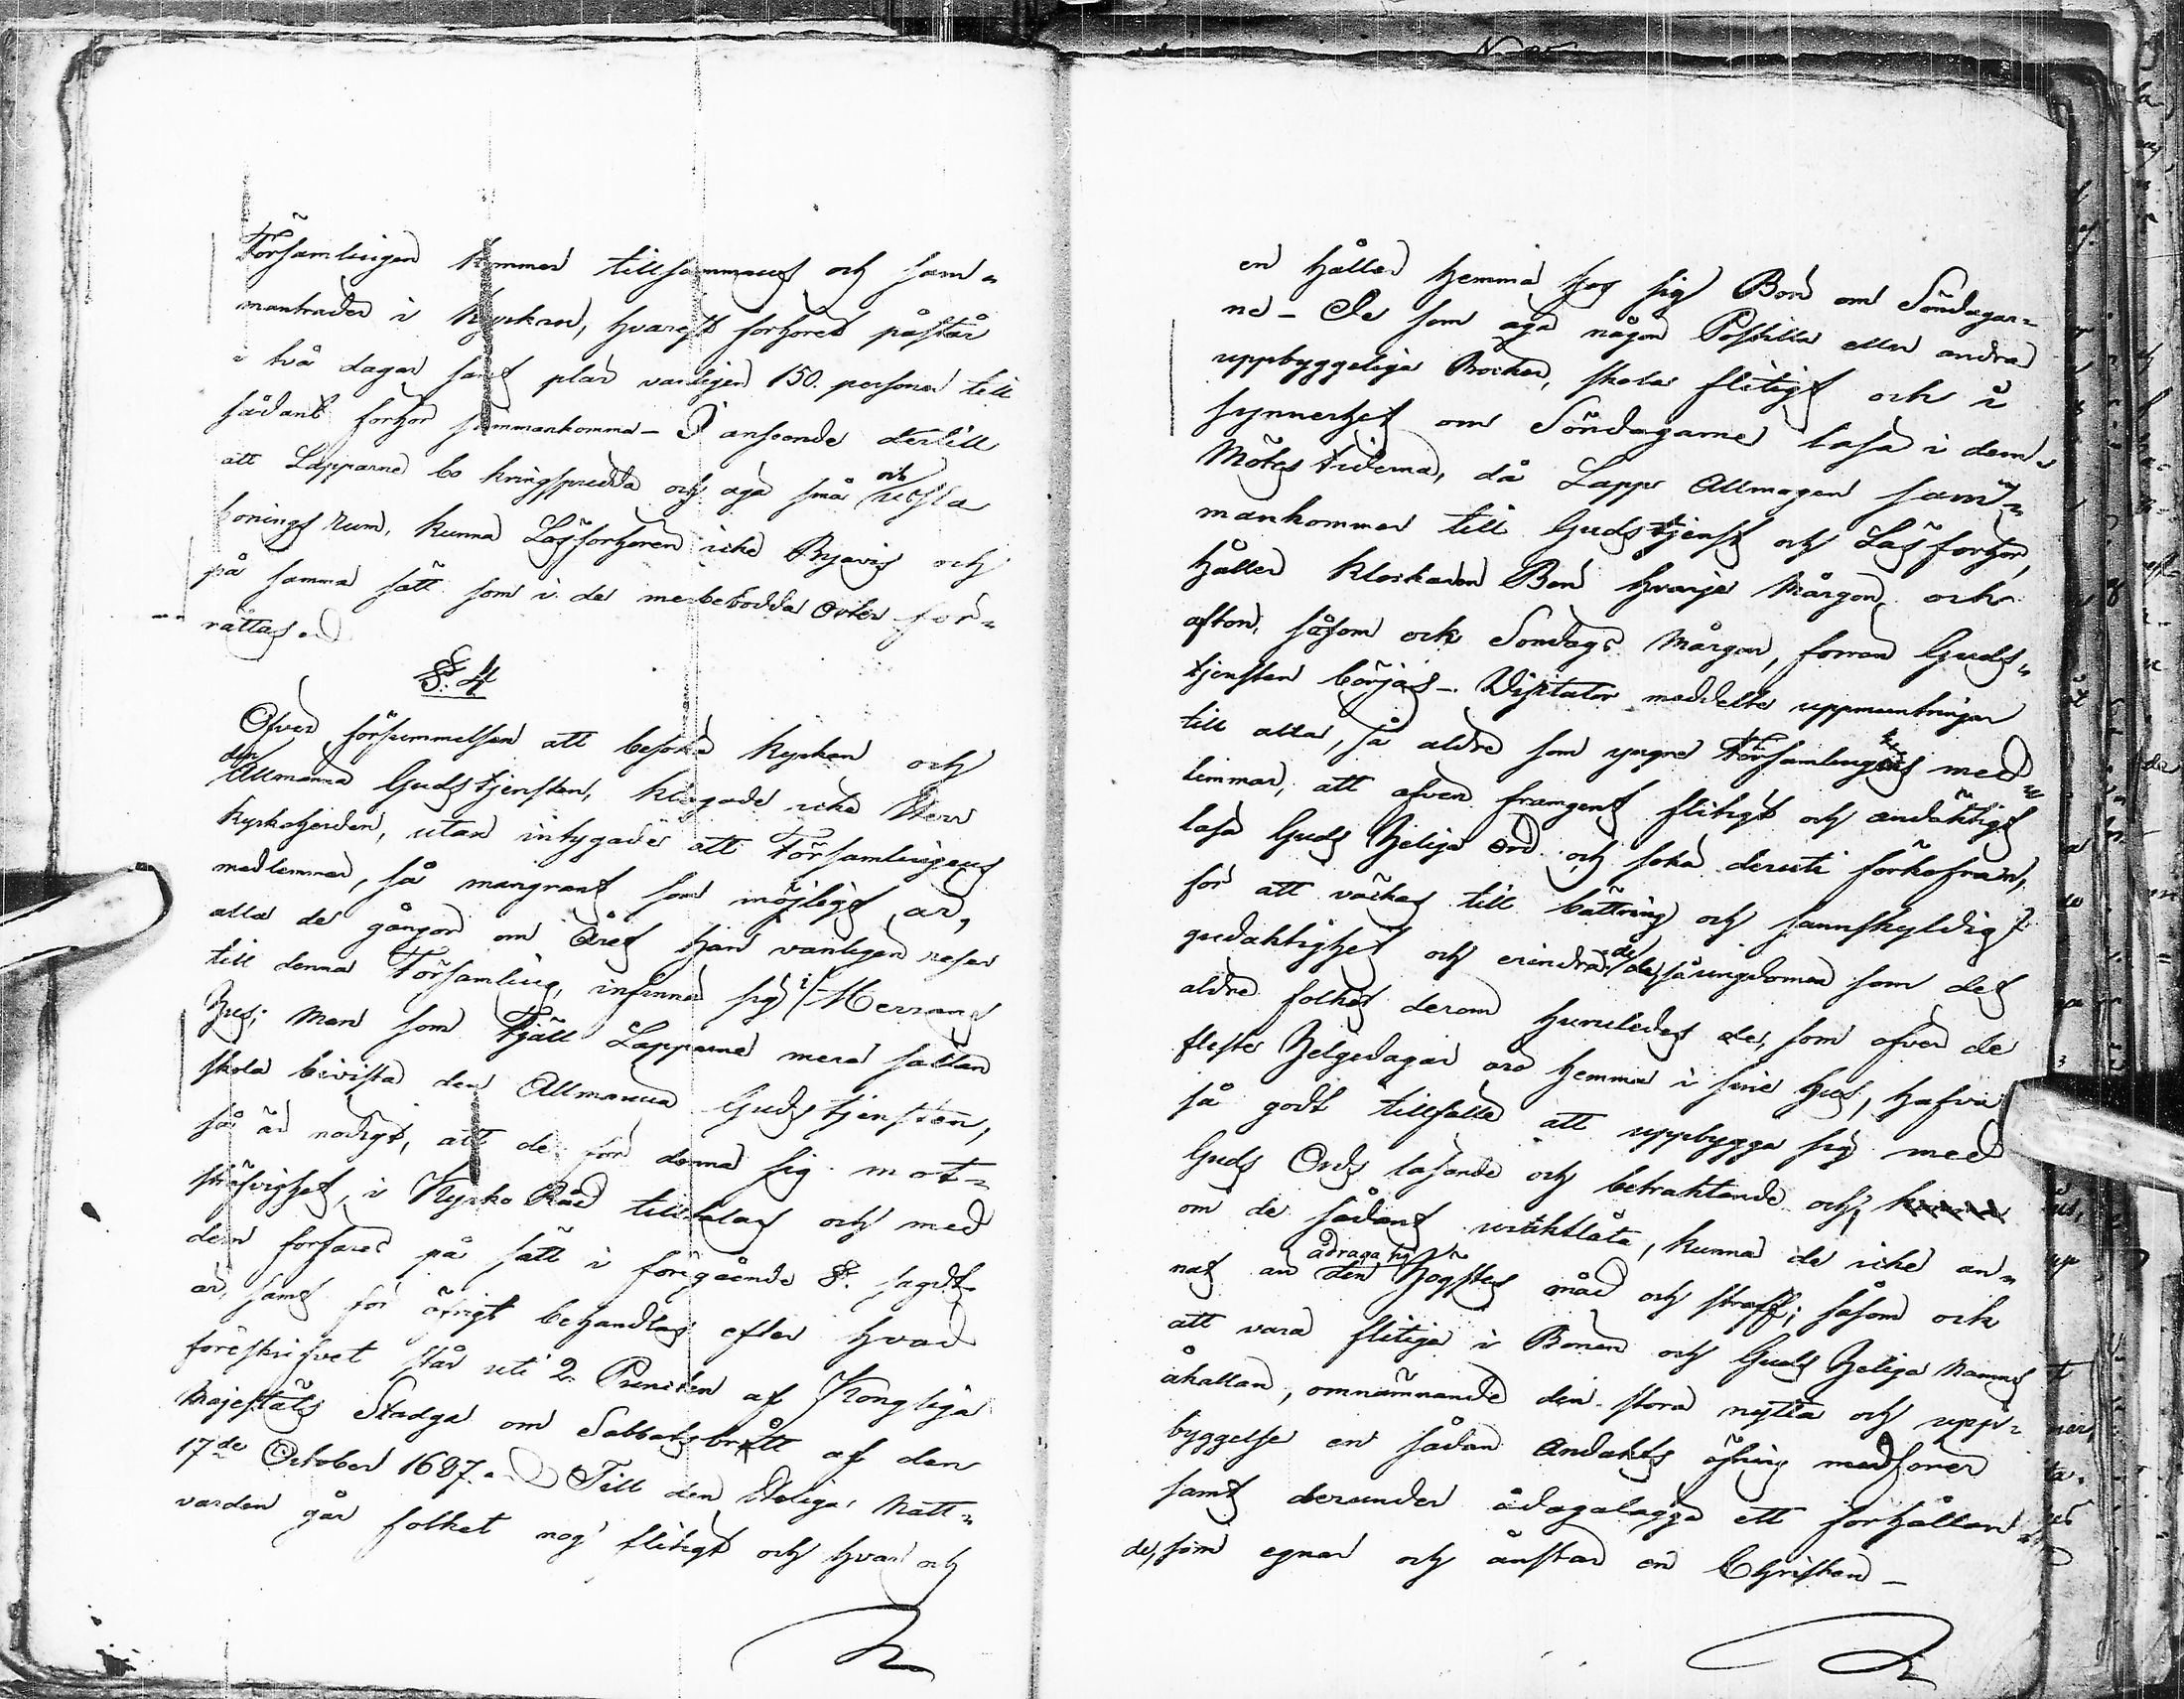 Församlingen kommer tillsammans och sam=
manträder i Kyrkan, hvarest förhöret påstår
i två dagar samt plär vanligen 150. personer till
sådant förhör sammankomma – I anseende dertill
att Lapparne bo kringspridda och äga små och usla
boningsrum, kunna Läsförhören icke Byavis och
på samma sätt som i de mer bebodda Orter för=
rättas.
§. 4
Öfver försummelsen att besöka Kyrkan och
den Allmänna Gudstjensten, klagade icke Herr
Kyrkoherden, utan intygade att Församlingens
medlemmar, så mangrant som möjligt är,
alla de gångor om Året han vanligen reser
till denna Församling, infinna sig i Herrans
Hus; Men som Fjäll Lapparne mera sällan
skola bevista den Allmänna Gudstjensten,
så är nödigt, att de för denna sig mot=
sträfvighet, i Kyrko Råd tilltalas och med
dem förfares på sätt i föregående §. sagdt
är, samt för öfrigt behandlas efter hvad
föreskrifvet står uti 2. Puncten af Kongliga
Majestäts Stadga om Sabbatsbrått af den
17de October 1687. Till den Heliga Natt=
varden går folket nog flitigt och hvar och
en håller hemma hos sig Bön om Söndagar=
ne – De som äga någon Postilla eller andra
uppbyggeliga Böcker, skola flitigt och i
synnerhet om Söndagarne läsa i dem
Mötes tiderna, då Lapp Allmogen sam=
mankommer till Gudstjenst och Läsförhör,
håller Klockaren Bön hvarje Mårgon och
afton, såsom ock Söndags Mårgon, förrän Guds=
tjensten börjas – Visitator meddelte uppmuntringar
till alla, så äldre som yngre Församlingens med=
lemmar, att äfven framgent flitigt och andäktigt
läsa Guds Heliga Ord och söka deruti förkofran,
för att väckas till bättring och sannskyldig
gudaktighet och erindrade så ungdomen som det
äldre folket derom huruledes de, som öfver de
fleste Helgedagar äro hemma i sine hus, hafva
så godt tillfälle att uppbygga sig med
Guds Ords läsande och betraktande och,
om de sådant urståktlåta, kunna de icke an=
nat än ådraga sig den Högstes onåd och straff; såsom ock
att vara flitiga i Bönen och Guds Heliga Namns
åkallan, omnämnande den stora nytta och upp=
byggelse en sådan Andakts öfning medförer
samt derunder ådagalägga ett förhållan=
de, som egnar och anstår en Christen –